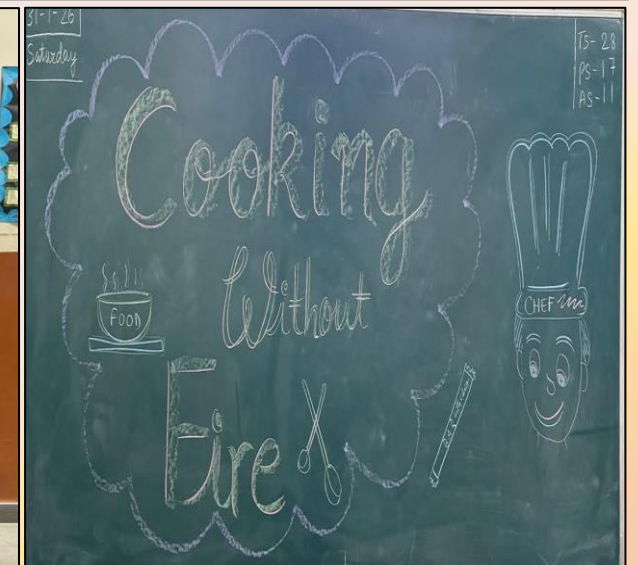 31-1-26
Saturday
TS- 28
PS-17
AS-11
Cooking
Without
Fire
FOOD
CHEF